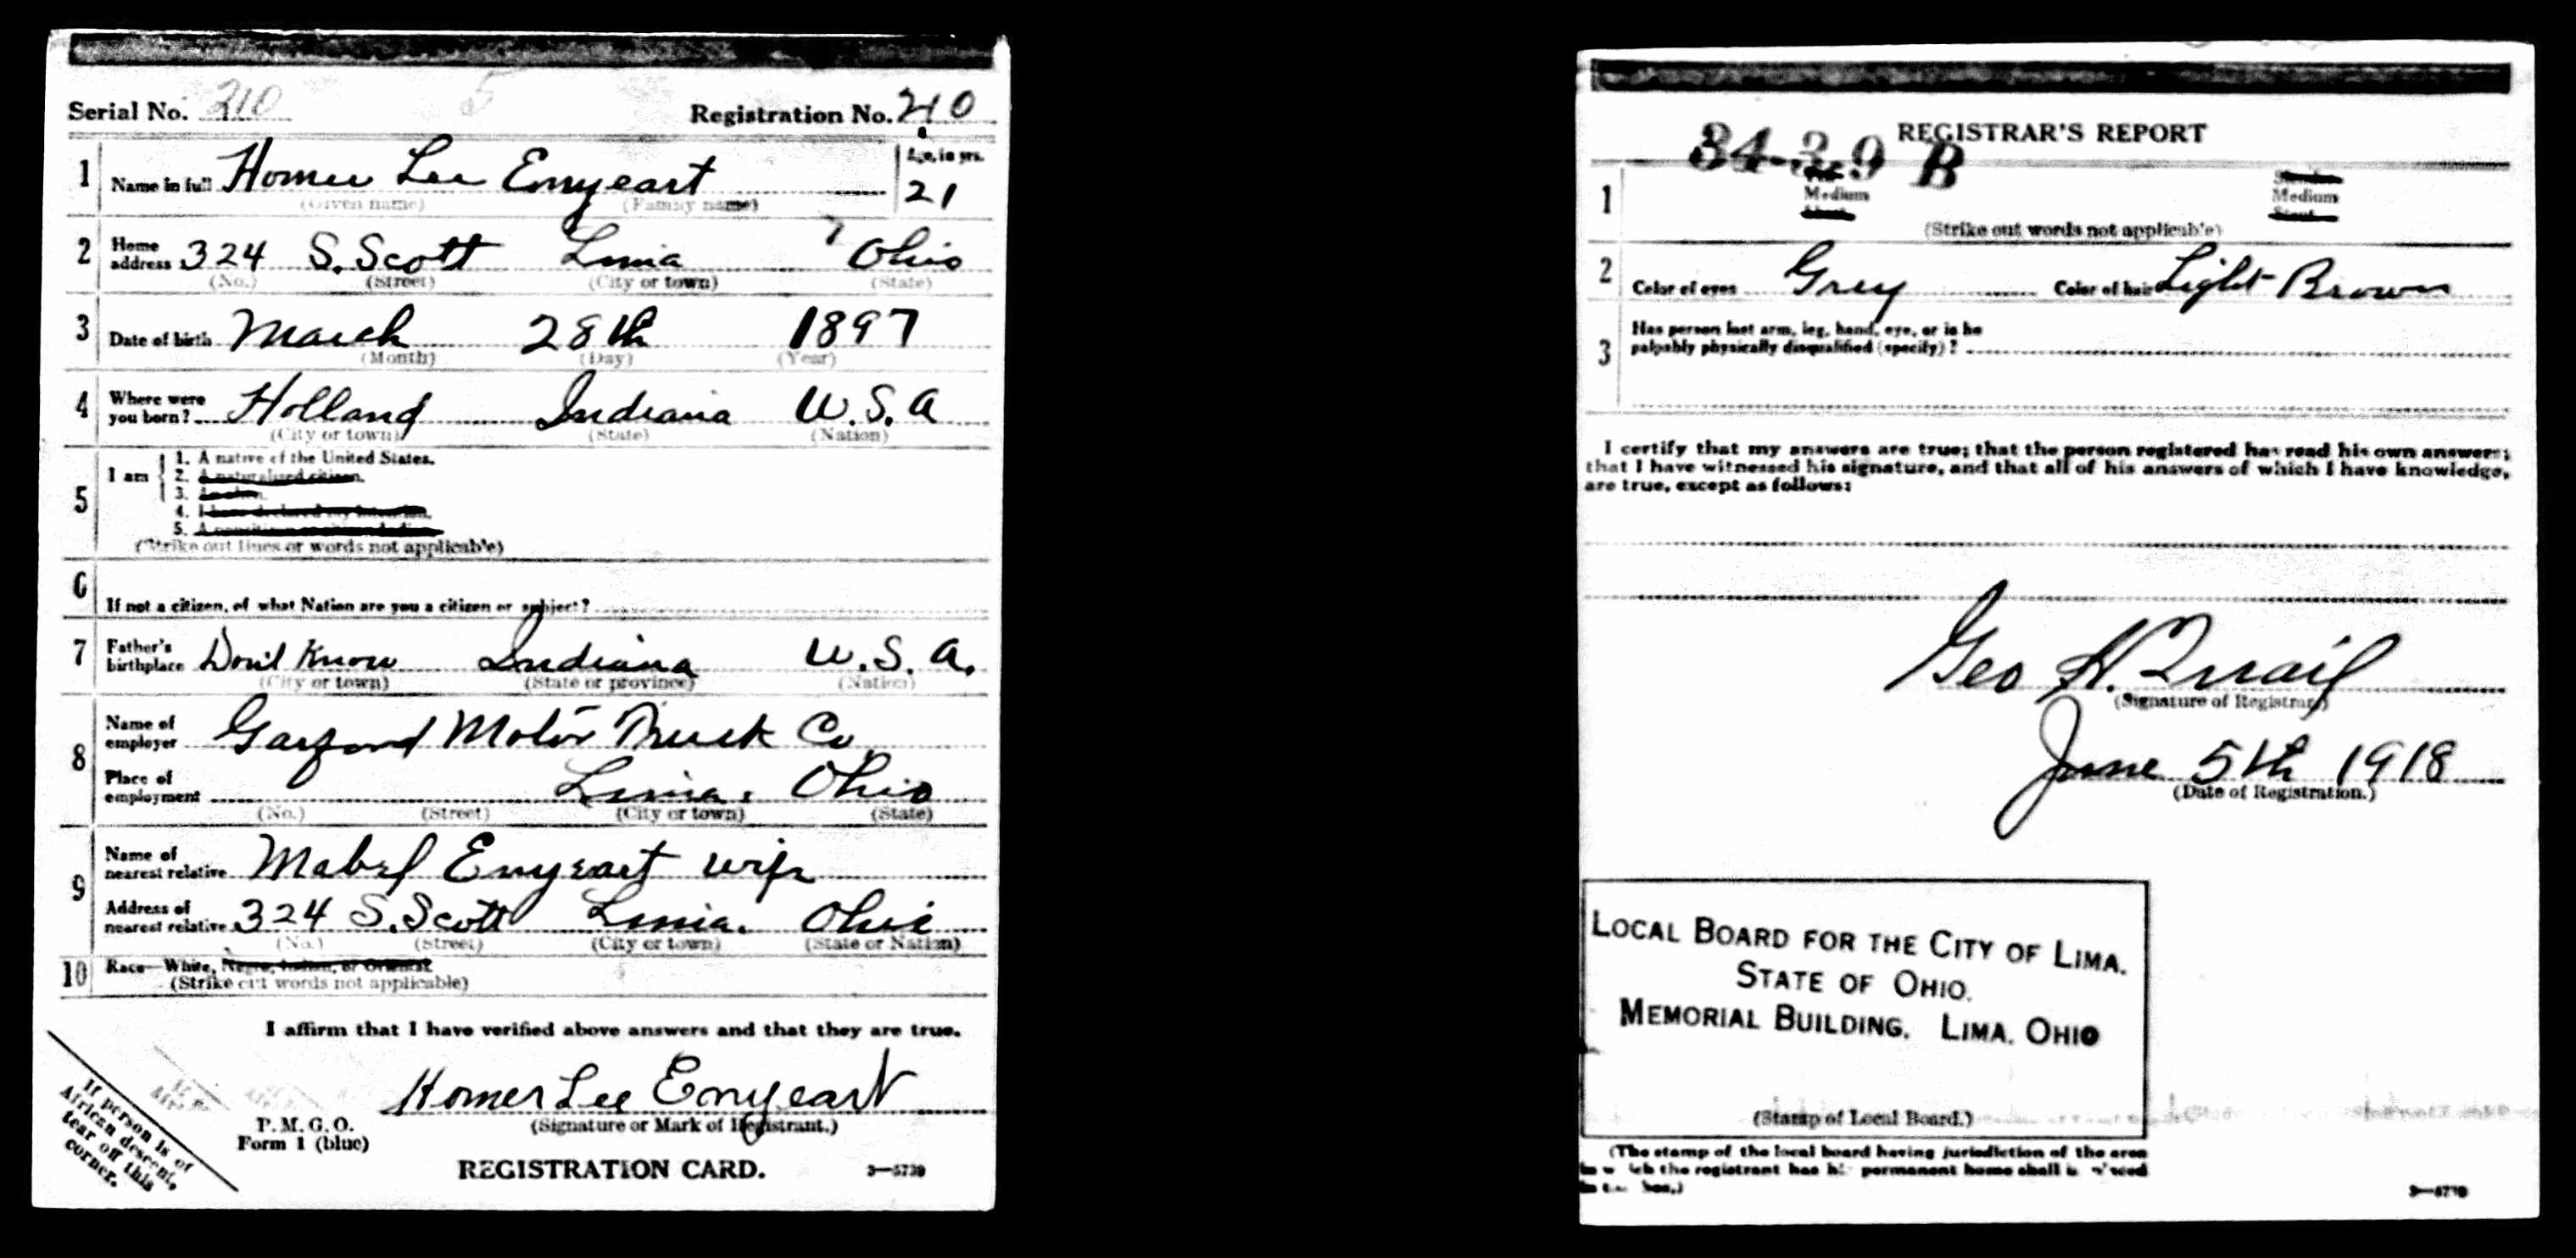 Serial No. 210 5 Registration No. 210
1 Name in full Homer Lee Enyeart Age, in yrs. 21
(Given name) (Family name)
2 Home address 324 S. Scott Lima Ohio
(No.) (Street) (City or town) (State)
3 Date of birth March 28th 1897
(Month) (Day) (Year)
4 Where were you born? Holland Indiana U.S.A
(City or town) (State) (Nation)
5 I am
1. A native of the United States.
2. A naturalized citizen.
3. An alien.
4. I have declared my intention.
5.
(Strike out lines or words not applicable)
6 If not a citizen, of what Nation are you a citizen or subject?
7 Father's birthplace Don't Know Indiana U.S.A.
(City or town) (State or province) (Nation)
8 Name of employer Garford Motor Truck Co
Place of employment Lima, Ohio
(No.) (Street) (City or town) (State)
9 Name of nearest relative Mabel Enyeart wife
Address of nearest relative 324 S. Scott Lima. Ohio
(No.) (Street) (City or town) (State or Nation)
10 Race—White, Negro, Indian, or Oriental
(Strike out words not applicable)
I affirm that I have verified above answers and that they are true.
Homer Lee Enyeart
(Signature or Mark of Registrant.)
P. M. G. O.
Form 1 (blue)
REGISTRATION CARD. 3—5739
If person is of
African descent,
tear off this
corner.
REGISTRAR'S REPORT
34-3-9 B
1 Medium Slender Medium Stout
(Strike out words not applicable)
2 Color of eyes Grey Color of hair Light Brown
3 Has person lost arm, leg, hand, eye, or is he
palpably physically disqualified (specify)?
I certify that my answers are true; that the person registered has read his own answers;
that I have witnessed his signature, and that all of his answers of which I have knowledge,
are true, except as follows:
Geo H. Quail
(Signature of Registrar)
June 5th 1918
(Date of Registration.)
LOCAL BOARD FOR THE CITY OF LIMA.
STATE OF OHIO.
MEMORIAL BUILDING. LIMA. OHIO
(Stamp of Local Board.)
(The stamp of the local board having jurisdiction of the area
the registrant has his permanent home shall
3—5739